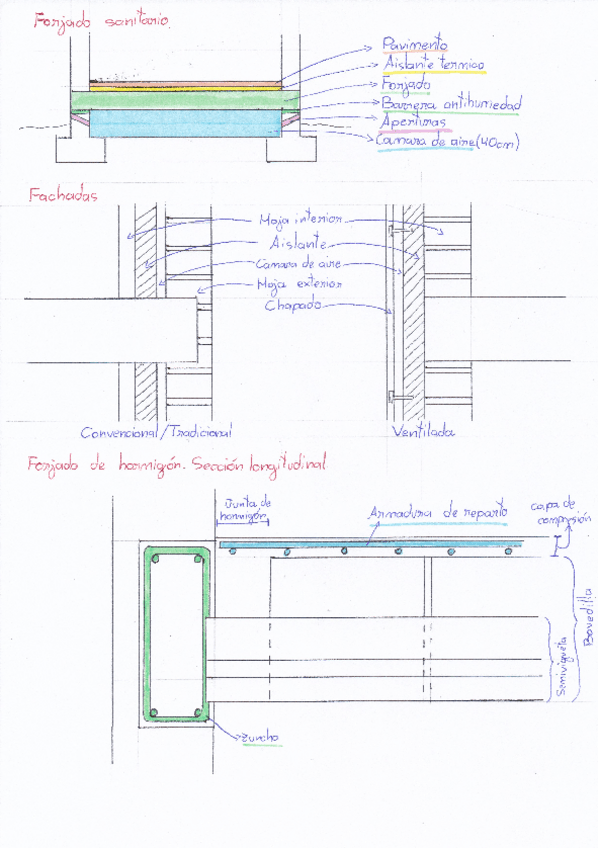 Forjado sanitario
Pavimento
Aislante termico
Forjado
Barrera antihumedad
Aperturas
Camara de aire (40cm)
Fachadas
Hoja interior
Aislante
Camara de aire
Hoja exterior
Chapado
Convencional/Tradicional
Ventilada
Forjado de hormigón. Sección longitudinal
Junta de
hormigón
Armadura de reparto
capa de
compresión
Bovedilla
Semivigueta
Zuncho